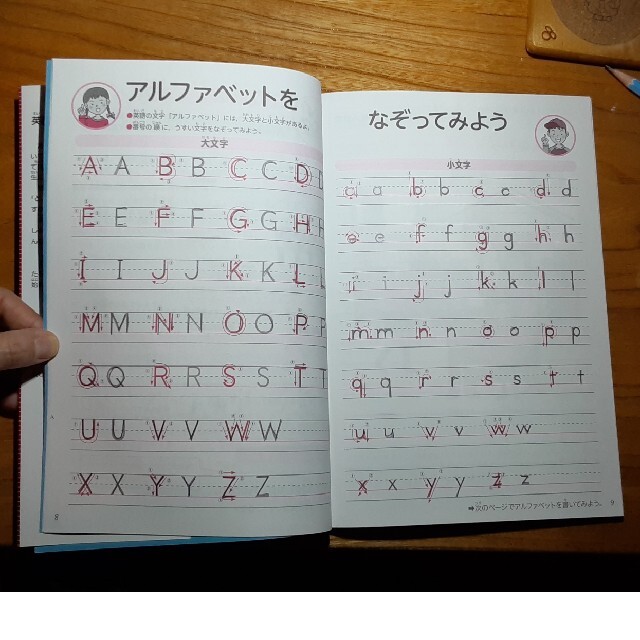 アルファベットを
●英語の文字「アルファベット」には、大文字と小文字があるよ。
●番号の順に、うすい文字をなぞってみよう。
大文字
A A B B C C D D
E E F F G G H H
I I J J K K L L
M M N N O O P P
Q Q R R S S T T
U U V V W W
X X Y Y Z Z
8
なぞってみよう
小文字
a a b b c c d d
e e f f g g h h
i i j j k k l l
m m n n o o p p
q q r r s s t t
u u v v w w
x x y y z z
➡次のページでアルファベットを書いてみよう。
9